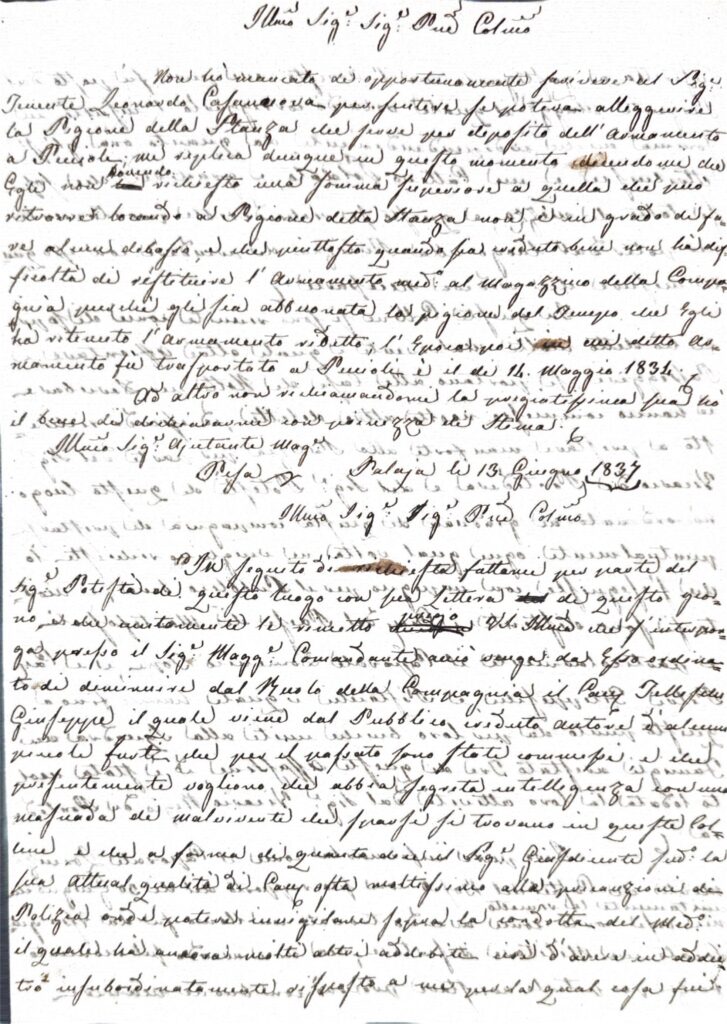 Illmo Sige Sige Prne Colmo
Non hò mancato di opportunamente scrivere al Sige
Tenente Leonardo Casanova per sentire se poteva alleggerire
la Pigione della Stanza che serve per deposito dell'Armamento
a Peciole, me replica dunque in questo momento dicendome che
Egli non avendo richiesto una somma superiore a quella che può
ritrarre locando a Pigione detta Stanza non è in grado di fa-
re alcun debasso e che piuttosto quando sia creduto bene non há dif
ficoltà di restituire l'Armamento medo al Magazzino della Compa-
gnia purchè gli sia abbuonata la pigione del Tempo che Egli
ha ritenuto l'Armamento suddetto, l'Epoca poi in cui detto Ar-
mamento fù trasportato a Peciole è il dì 14. Maggio 1834.
Ad altro non richiamandomi la pregiatissima sua hò
il bene di dichiararme con pienezza di Stima
Illmo Sige Ajutante Mage
Pisa Palaja li 13 Giugno 1837
Illmo Sige Sige Prne Colmo
In seguito di richiesta fattame per parte del
Sige Potestà di questo luogo con sua lettera di questo gior-
no, e che unitamente le rimetto prego VS. Illma che s'interpon-
ga presso il Sige Magge Comandante acciò venga da Esso ordina-
to di diminuire dal Ruolo della Compagnia il Cane
Giuseppe il quale viene dal Pubblico creduto autore d'alcuni
piccoli furti che per il passato sono stati commessi e che
presentemente vogliono che abbia segreta intelligenza con una
masnada di malvivente che sparsi si trovano in queste Col-
line e che a forma di quanto dice il Sige Giusdicente sudo la
sua attual qualità di osta moltissimo alla precauzione di
Polizia onde potere invigilare sopra la condotta del Medo
il quale ha ancora molti altri addebiti cioè d'avere in addie-
tro insubordinatamente risposto a me per la qual cosa fui